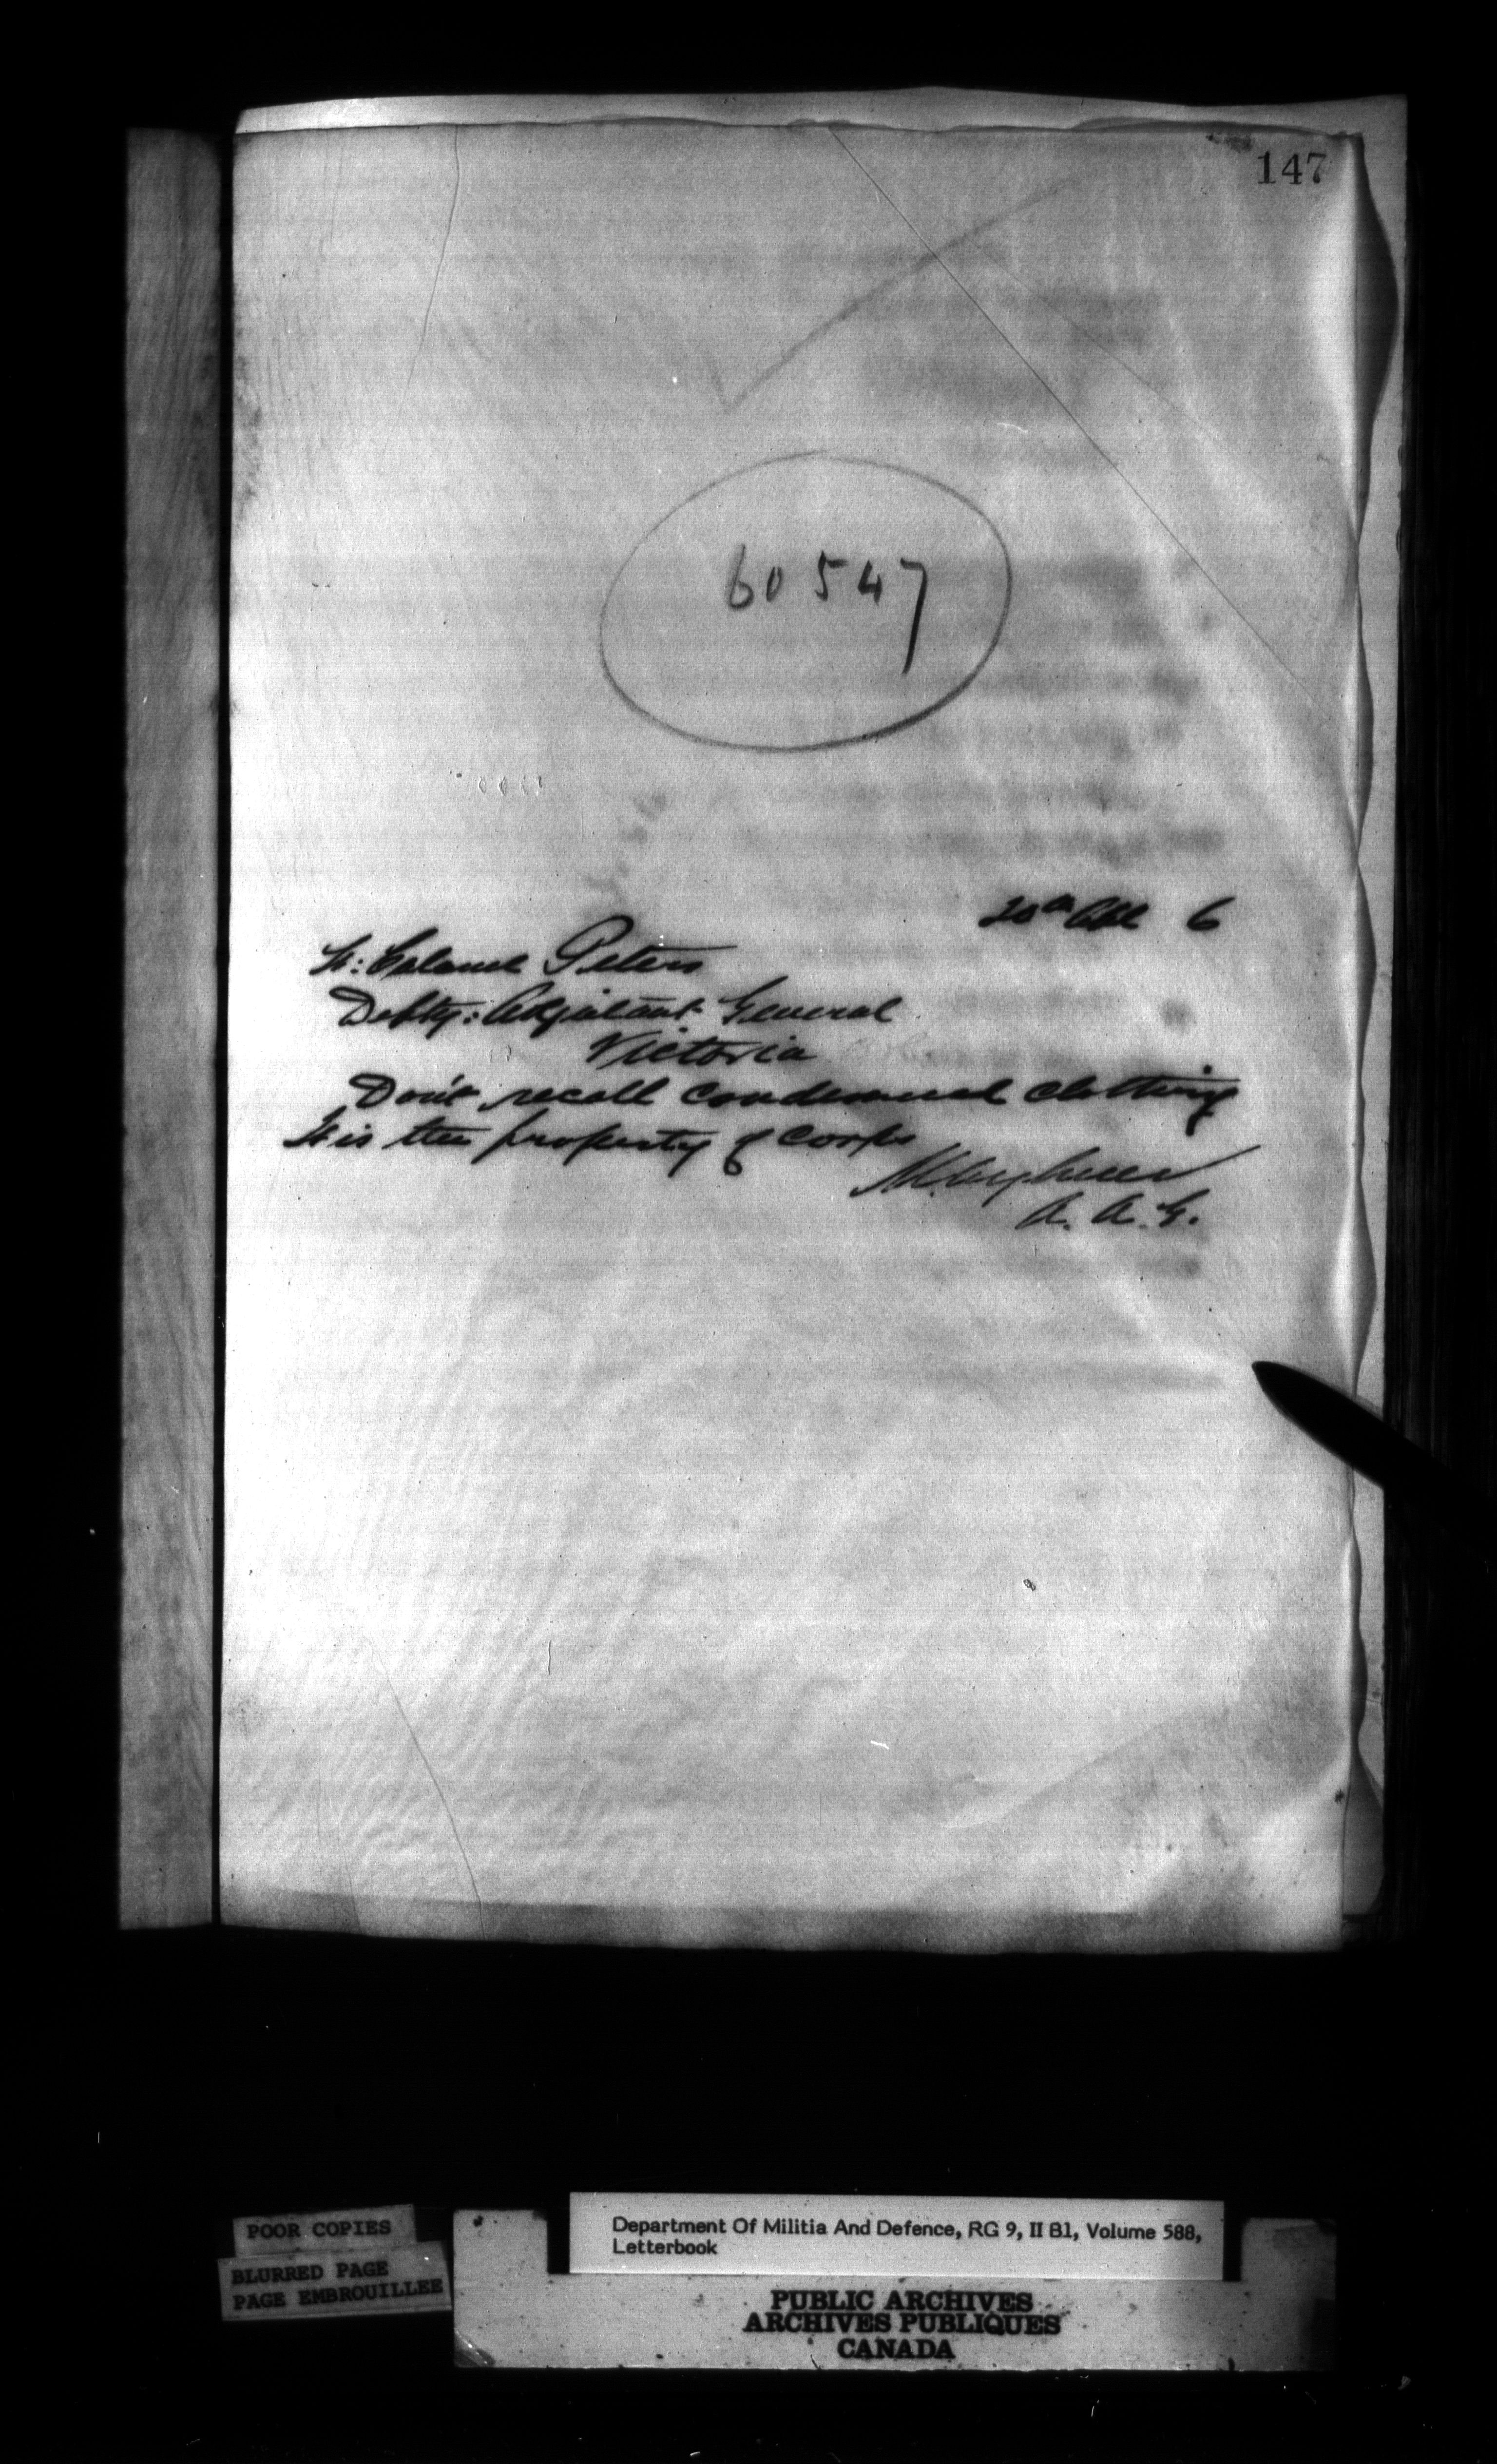 147
60547
20th Apl 6
Lt: Colonel Peters
Depty: Adjutant General
Victoria
Don't recall condemned clothing
It is the property of corps
A. A. G.
POOR COPIES
BLURRED PAGE
PAGE EMBROUILLEE
Department Of Militia And Defence, RG 9, II B1, Volume 588,
Letterbook
PUBLIC ARCHIVES
ARCHIVES PUBLIQUES
CANADA